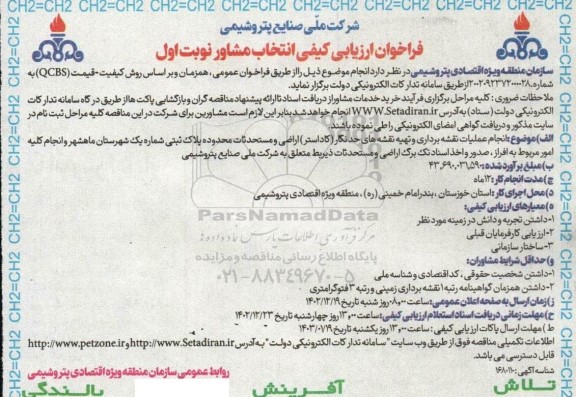 شرکت ملّی صنایع پتروشیمی
فراخوان ارزیابی کیفی انتخاب مشاور نوبت اول
سازمان منطقه ویژه اقتصادی پتروشیمی در نظر دارد انجام موضوع ذیل را از طریق فراخوان عمومی ، همزمان و بر اساس روش کیفیت-قیمت (QCBS) به
شماره ۲۰۰۲۰۹۲۳۷۲۰۰۰۰۲۸ از طریق سامانه تدارکات الکترونیکی دولت برگزار نماید.
ملاحظات ضروری : کلیه مراحل برگزاری فرآیند خرید خدمات مشاور از دریافت اسناد تا ارائه پیشنهاد مناقصه گران و بازگشایی پاکت ها از طریق درگاه سامانه تدارکات
الکترونیکی دولت (ستاد) به آدرس www.Setadiran.ir انجام خواهد شد بنابراین لازم است مشاورین برای شرکت در این مناقصه کلیه مراحل ثبت نام در
سایت مذکور و دریافت گواهی امضای الکترونیکی را طی نموده باشند.
الف) موضوع: انجام عملیات نقشه برداری و تهیه نقشه های حدنگار (کاداستر) اراضی و مستحدثات محدوده پلاک ثبتی شماره یک شهرستان ماهشهر و انجام کلیه
امور مربوط به افراز ، صدور و اخذ اسناد تک برگ اراضی و مستحدثات ذیربط متعلق به شرکت ملی صنایع پتروشیمی
ب) مبلغ برآورد شده: ۴۳,۶۹۰,۰۳۱,۵۹۰
ج) مدت انجام کار : ۱۲ ماه
د) محل اجرای کار : استان خوزستان ، بندر امام خمینی (ره) ، منطقه ویژه اقتصادی پتروشیمی
ه) معیارهای ارزیابی کیفی:
۱-داشتن تجربه و دانش در زمینه مورد نظر
۲-ارزیابی کارفرمایان قبلی
۳-ساختار سازمانی
و) حداقل شرایط مشاوران:
۱-داشتن شخصیت حقوقی ، کد اقتصادی و شناسه ملی
۲-داشتن همزمان گواهینامه رتبه ۱ نقشه برداری زمینی و رتبه ۳ فتوگرامتری
ز) زمان ارسال به صفحه اعلان عمومی: ساعت ۰۸:۰۰ روز شنبه تاریخ ۱۴۰۲/۱۲/۱۹
ح) مهلت زمانی دریافت اسناد استعلام ارزیابی کیفی: ساعت ۱۳:۰۰ روز چهارشنبه تاریخ ۱۴۰۲/۱۲/۲۳
ط) مهلت ارسال پاکات ارزیابی کیفی : ساعت ۱۳:۰۰ روز یکشنبه تاریخ ۱۴۰۳/۰۱/۱۹
اطلاعات تکمیلی مناقصه فوق از طریق وب سایت "سامانه تدارکات الکترونیکی دولت" به آدرس http://www.Setadiran.ir و http://www.petzone.ir
قابل دسترسی می باشد.
شناسه آگهی: ۱۶۸۰۱۱۰
روابط عمومی سازمان منطقه ویژه اقتصادی پتروشیمی
تلاش آفرینش بالندگی
CH2=CH2 CH2=CH2 CH2=CH2 CH2=CH2 CH2=CH2
ParsNamadData
مرکز فرآوری اطلاعات پارس نماد داده ها
پایگاه اطلاع رسانی مناقصه و مزایده
۰۲۱-۸۸۳۴۹۶۷۰-۵